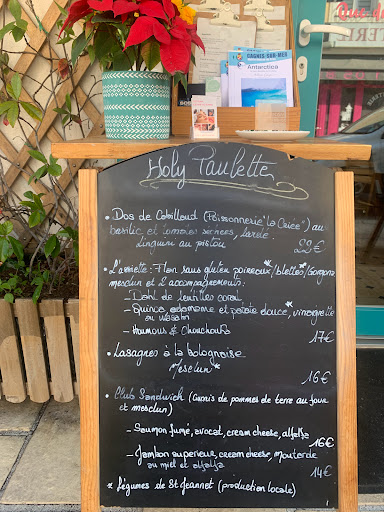 CAGNES-SUR-MER
Antarctica
Holy Paulette
• Dos de Cabillaud (Poissonnerie "La Criée") au
basilic et tomates séchées, lardé.
Linguini au pistou 22€
• L'assiette : Flan sans gluten poireaux*/blettes*/gorgonz
mesclun et 2 accompagnements :
- Dahl de lentilles corail
- Quinoa edamame et patate douce*, vinaigrette
au wasabi
- Houmous & Chouchoufs
17€
• Lasagnes à la bolognaise
Mesclun* 16€
• Club Sandwich (Cubris de pommes de terre au four
et mesclun)
- Saumon fumé, avocat, cream cheese, alfalfa
16€
- Jambon superieur, cream cheese, moutarde
au miel et alfalfa 14€
* légumes de St Jeannet (production locale)